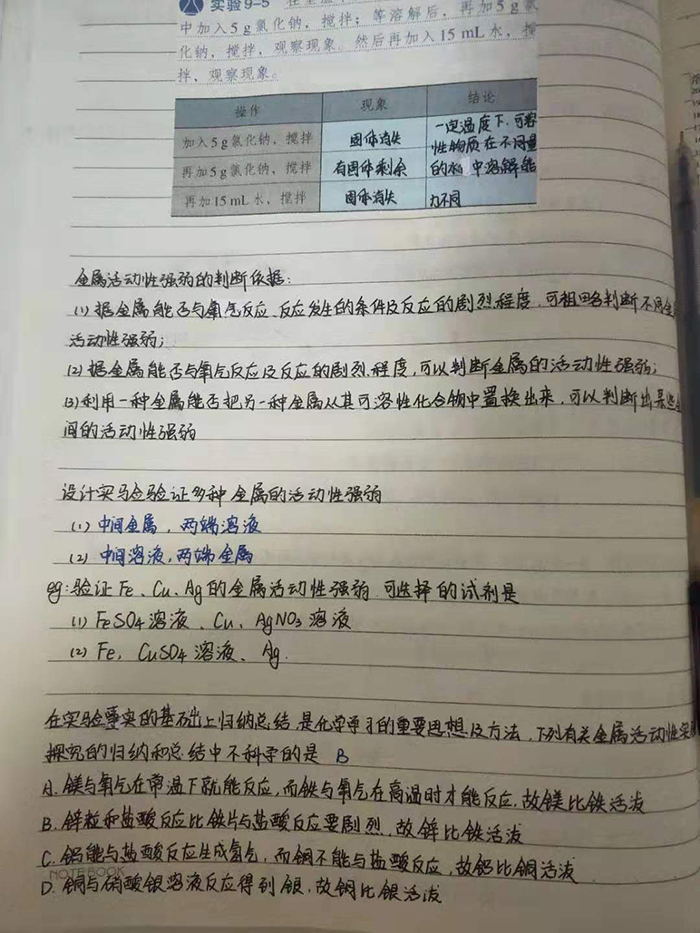 实验9-5
中加入5 g氯化钠，搅拌；等溶解后，再加5 g氯
化钠，搅拌，观察现象。然后再加入15 mL水，搅
拌，观察现象。
操作 现象 结论
加入5 g氯化钠，搅拌 固体消失 一定温度下，可溶
性物质在不同量
再加5 g氯化钠，搅拌 有固体剩余 的水中溶解能
再加15 mL水，搅拌 固体消失 力不同
金属活动性强弱的判断依据：
(1)据金属能否与氧气反应、反应发生的条件及反应的剧烈程度，可粗略判断不同金
活动性强弱；
(2)据金属能否与氧气反应及反应的剧烈程度，可以判断金属的活动性强弱；
(3)利用一种金属能否把另一种金属从其可溶性化合物中置换出来，可以判断出某些金
间的活动性强弱
设计实验验证多种金属的活动性强弱
(1)中间金属，两端溶液
(2)中间溶液，两端金属
eg:验证Fe、Cu、Ag的金属活动性强弱，可选择的试剂是
(1) FeSO4溶液、Cu、AgNO3溶液
(2) Fe，CuSO4溶液、Ag.
在实验事实的基础上归纳总结，是化学学习的重要思想及方法，下列有关金属活动性实验
探究的归纳和总结中不科学的是 B
A. 镁与氧气在常温下就能反应，而铁与氧气在高温时才能反应，故镁比铁活泼
B. 锌粒和盐酸反应比铁片与盐酸反应要剧烈，故锌比铁活泼
C. 铝能与盐酸反应生成氢气，而铜不能与盐酸反应，故铝比铜活泼
D. 铜与硝酸银溶液反应得到银，故铜比银活泼
NOTEBOOK